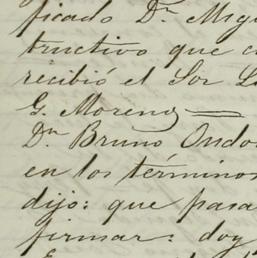 ficado Dn. Migu
tructivo que c
recibió el Sor L
G. Moreno
Dn Bruno Ondo
en los términos
dijo: que pasa
firmar: doy